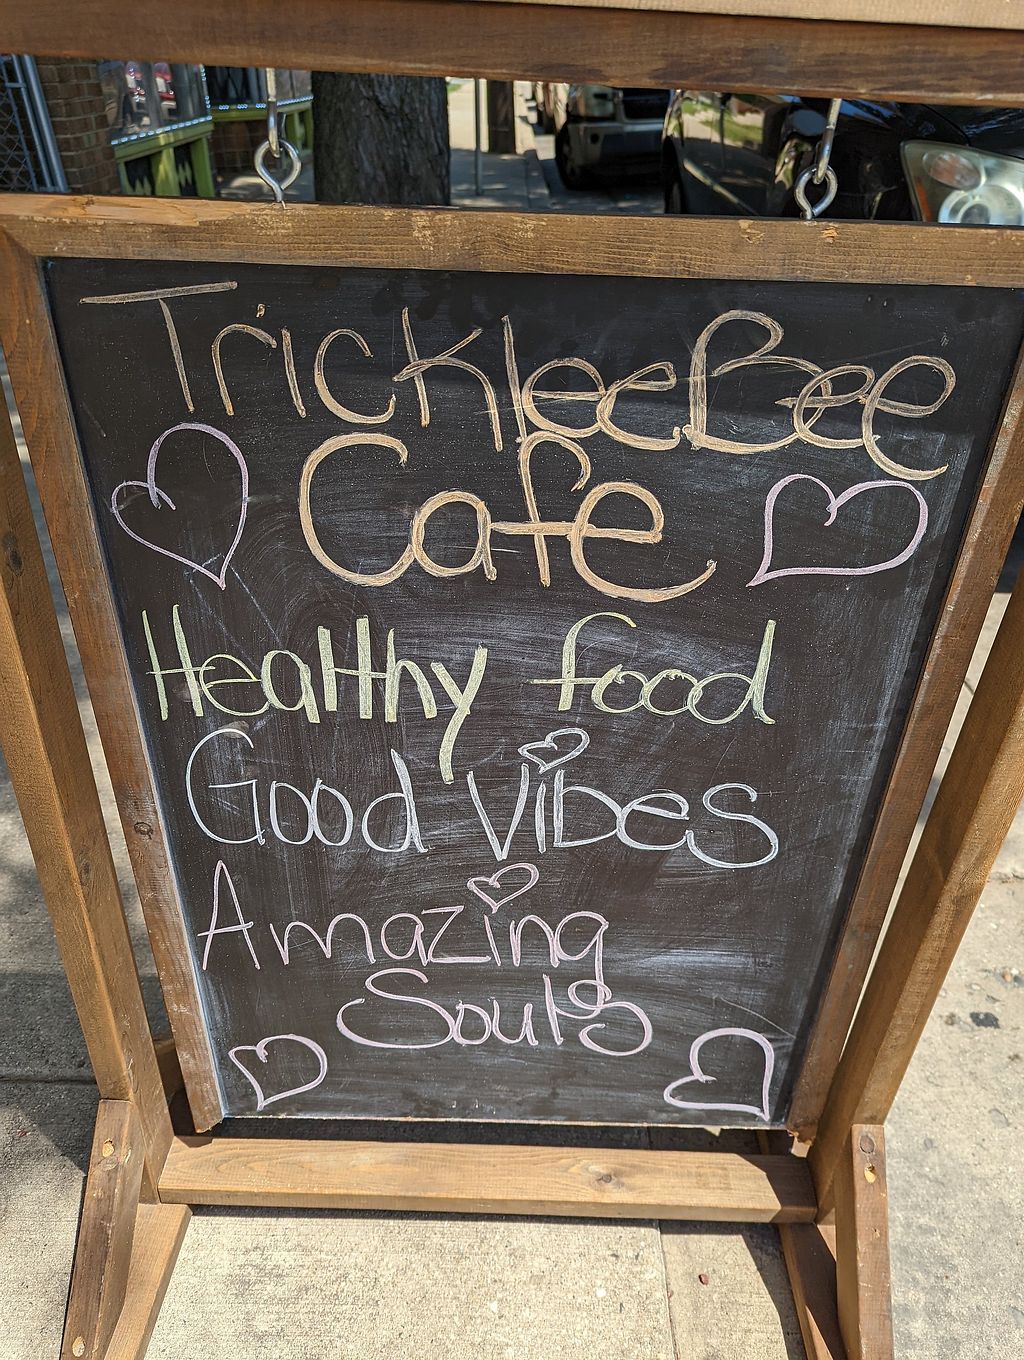 TrickleeBee
Cafe
Healthy food
Good Vibes
Amazing
Souls